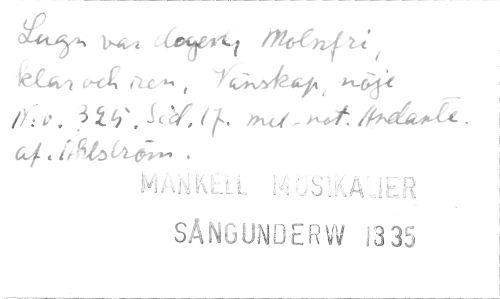 Lugn var dagen, Molnfri,
klar och ren, Vänskap, nöje
N:o. 325. Sid. 17. mel-not. Andante.
af. Åhlström.
MANKELL MUSIKALIER
SÅNGUNDERW 1335